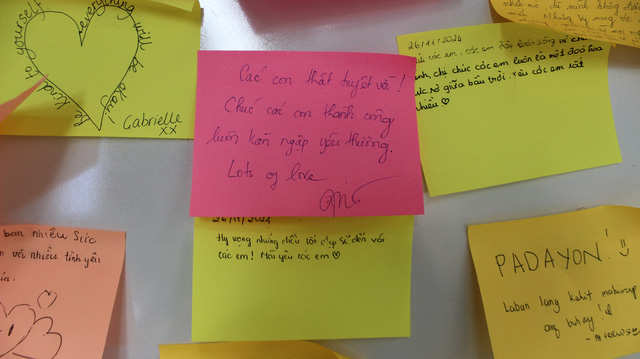 Be kind to yourself everything will be okay!
Gabrielle
XX
Các con thật tuyệt vời!
Chúc các con thành công
luôn tràn ngập yêu thương.
Lots of love
26/11/2024
Hy vọng những điều tốt đẹp sẽ đến với
các em! Mãi yêu các em ♡
26/11/2024
các em, các em
chị chúc các em luôn là một đoá hoa
rực rỡ giữa bầu trời, yêu các em rất
nhiều ♡
nhiều sức
với nhiều tình yêu
PADAYON!
Laban lang kahit mahirap
ang buhay!